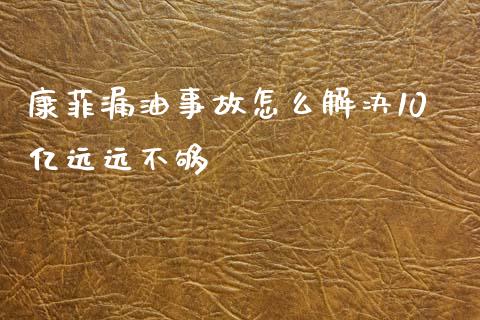 康菲漏油事故怎么解决10
亿远远不够